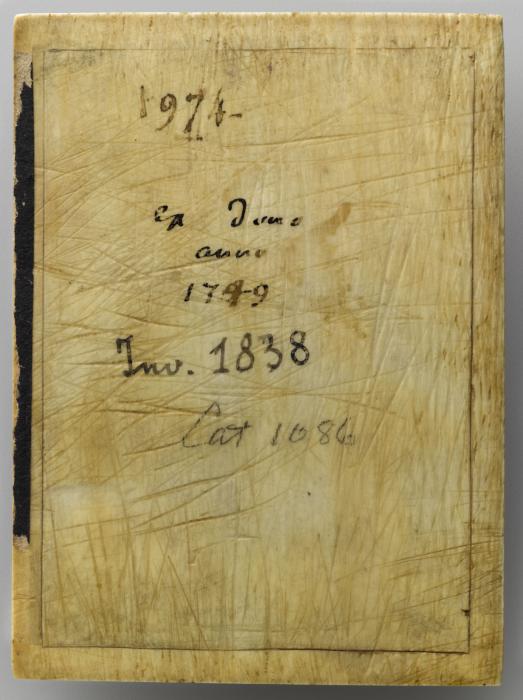 1974
ex Dono
anno
1749
Inv. 1838
Cat 1086